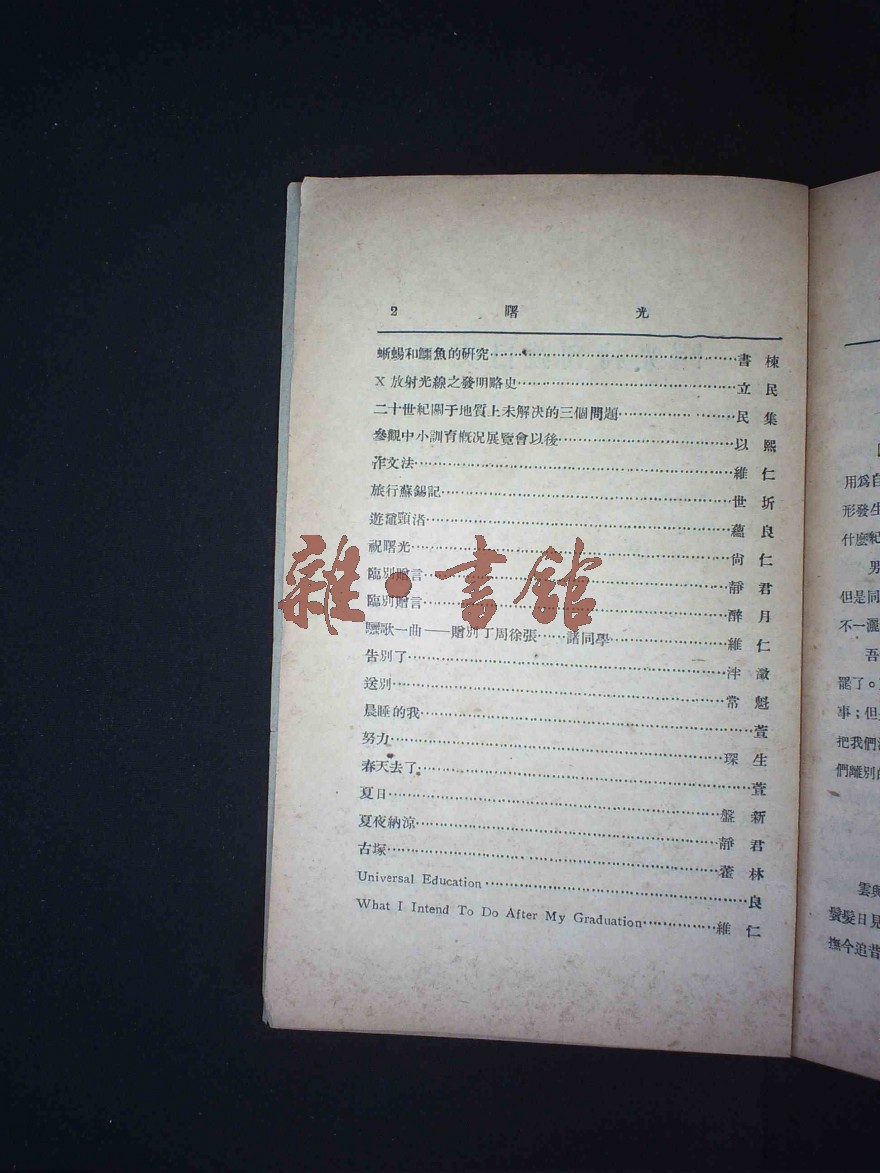 2 曙光
蜥蜴和鱷魚的研究……書棟
X 放射光線之發明略史……立民
二十世紀關于地質上未解決的三個問題……民集
參觀中小訓育概况展覽會以後……以熙
作文法……維仁
旅行蘇錫記……世圻
遊黿頭渚……蘊良
祝曙光……尙仁
臨別贈言……靜君
臨別贈言……醉月
驪歌一曲——贈別丁周徐張……諸同學……維仁
告別了……泮澂
送別……常魁
晨睡的我……萱
努力……琛生
春天去了……萱
夏日……盤新
夏夜納涼……靜君
古塚……藿林
Universal Education……良
What I Intend To Do After My Graduation……維仁
雜·書館
用爲自
形發生
什麽紀
男
但是同
不一灑
吾
罷了。
事；但
把我們
們離別
雲
鬢髮日見
撫今追昔